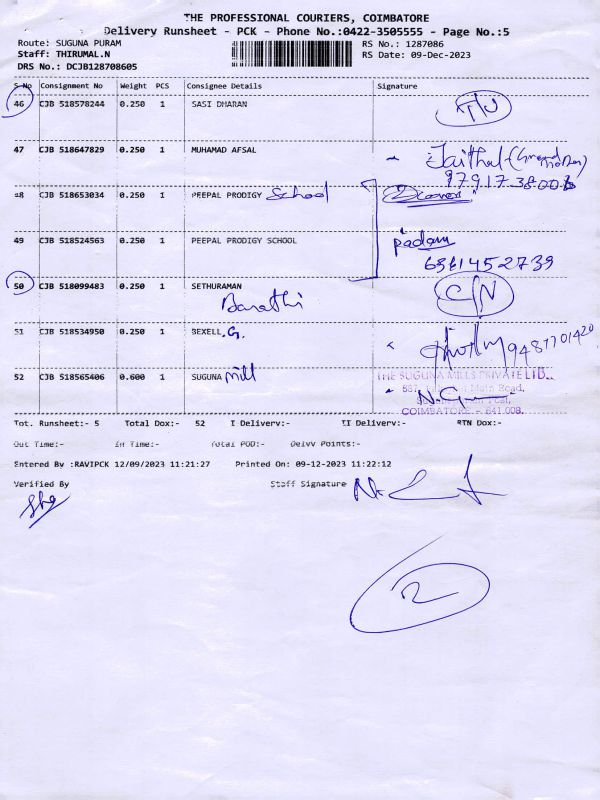 THE PROFESSIONAL COURIERS, COIMBATORE
Delivery Runsheet - PCK - Phone No.:0422-3505555 - Page No.:5
Route: SUGUNA PURAM RS No.: 1287086
Staff: THIRUMAL.N RS Date: 09-Dec-2023
DRS No.: DCJB128708605
S.No Consignment No Weight PCS Consignee Details Signature
46 CJB 518578244 0.250 1 SASI DHARAN
47 CJB 518647829 0.250 1 MUHAMAD AFSAL
9791738006
48 CJB 518653034 0.250 1 PEEPAL PRODIGY School
49 CJB 518524563 0.250 1 PEEPAL PRODIGY SCHOOL padam
50 CJB 518099483 0.250 1 SETHURAMAN C/N
Barathi
51 CJB 518534950 0.250 1 BEXELL.G. 9487701420
52 CJB 518565406 0.600 1 SUGUNA mill THE SUGUNA MILLS PRIVATE LTD.,
Main Road,
COIMBATORE - 641 008.
Tot. Runsheet:- 5 Total Dox:- 52 I Delivery:- II Delivery:- RTN Dox:-
Out Time:- In Time:- Total POD:- Delvy Points:-
Entered By :RAVIPCK 12/09/2023 11:21:27 Printed On: 09-12-2023 11:22:12
Verified By Staff Signature
2